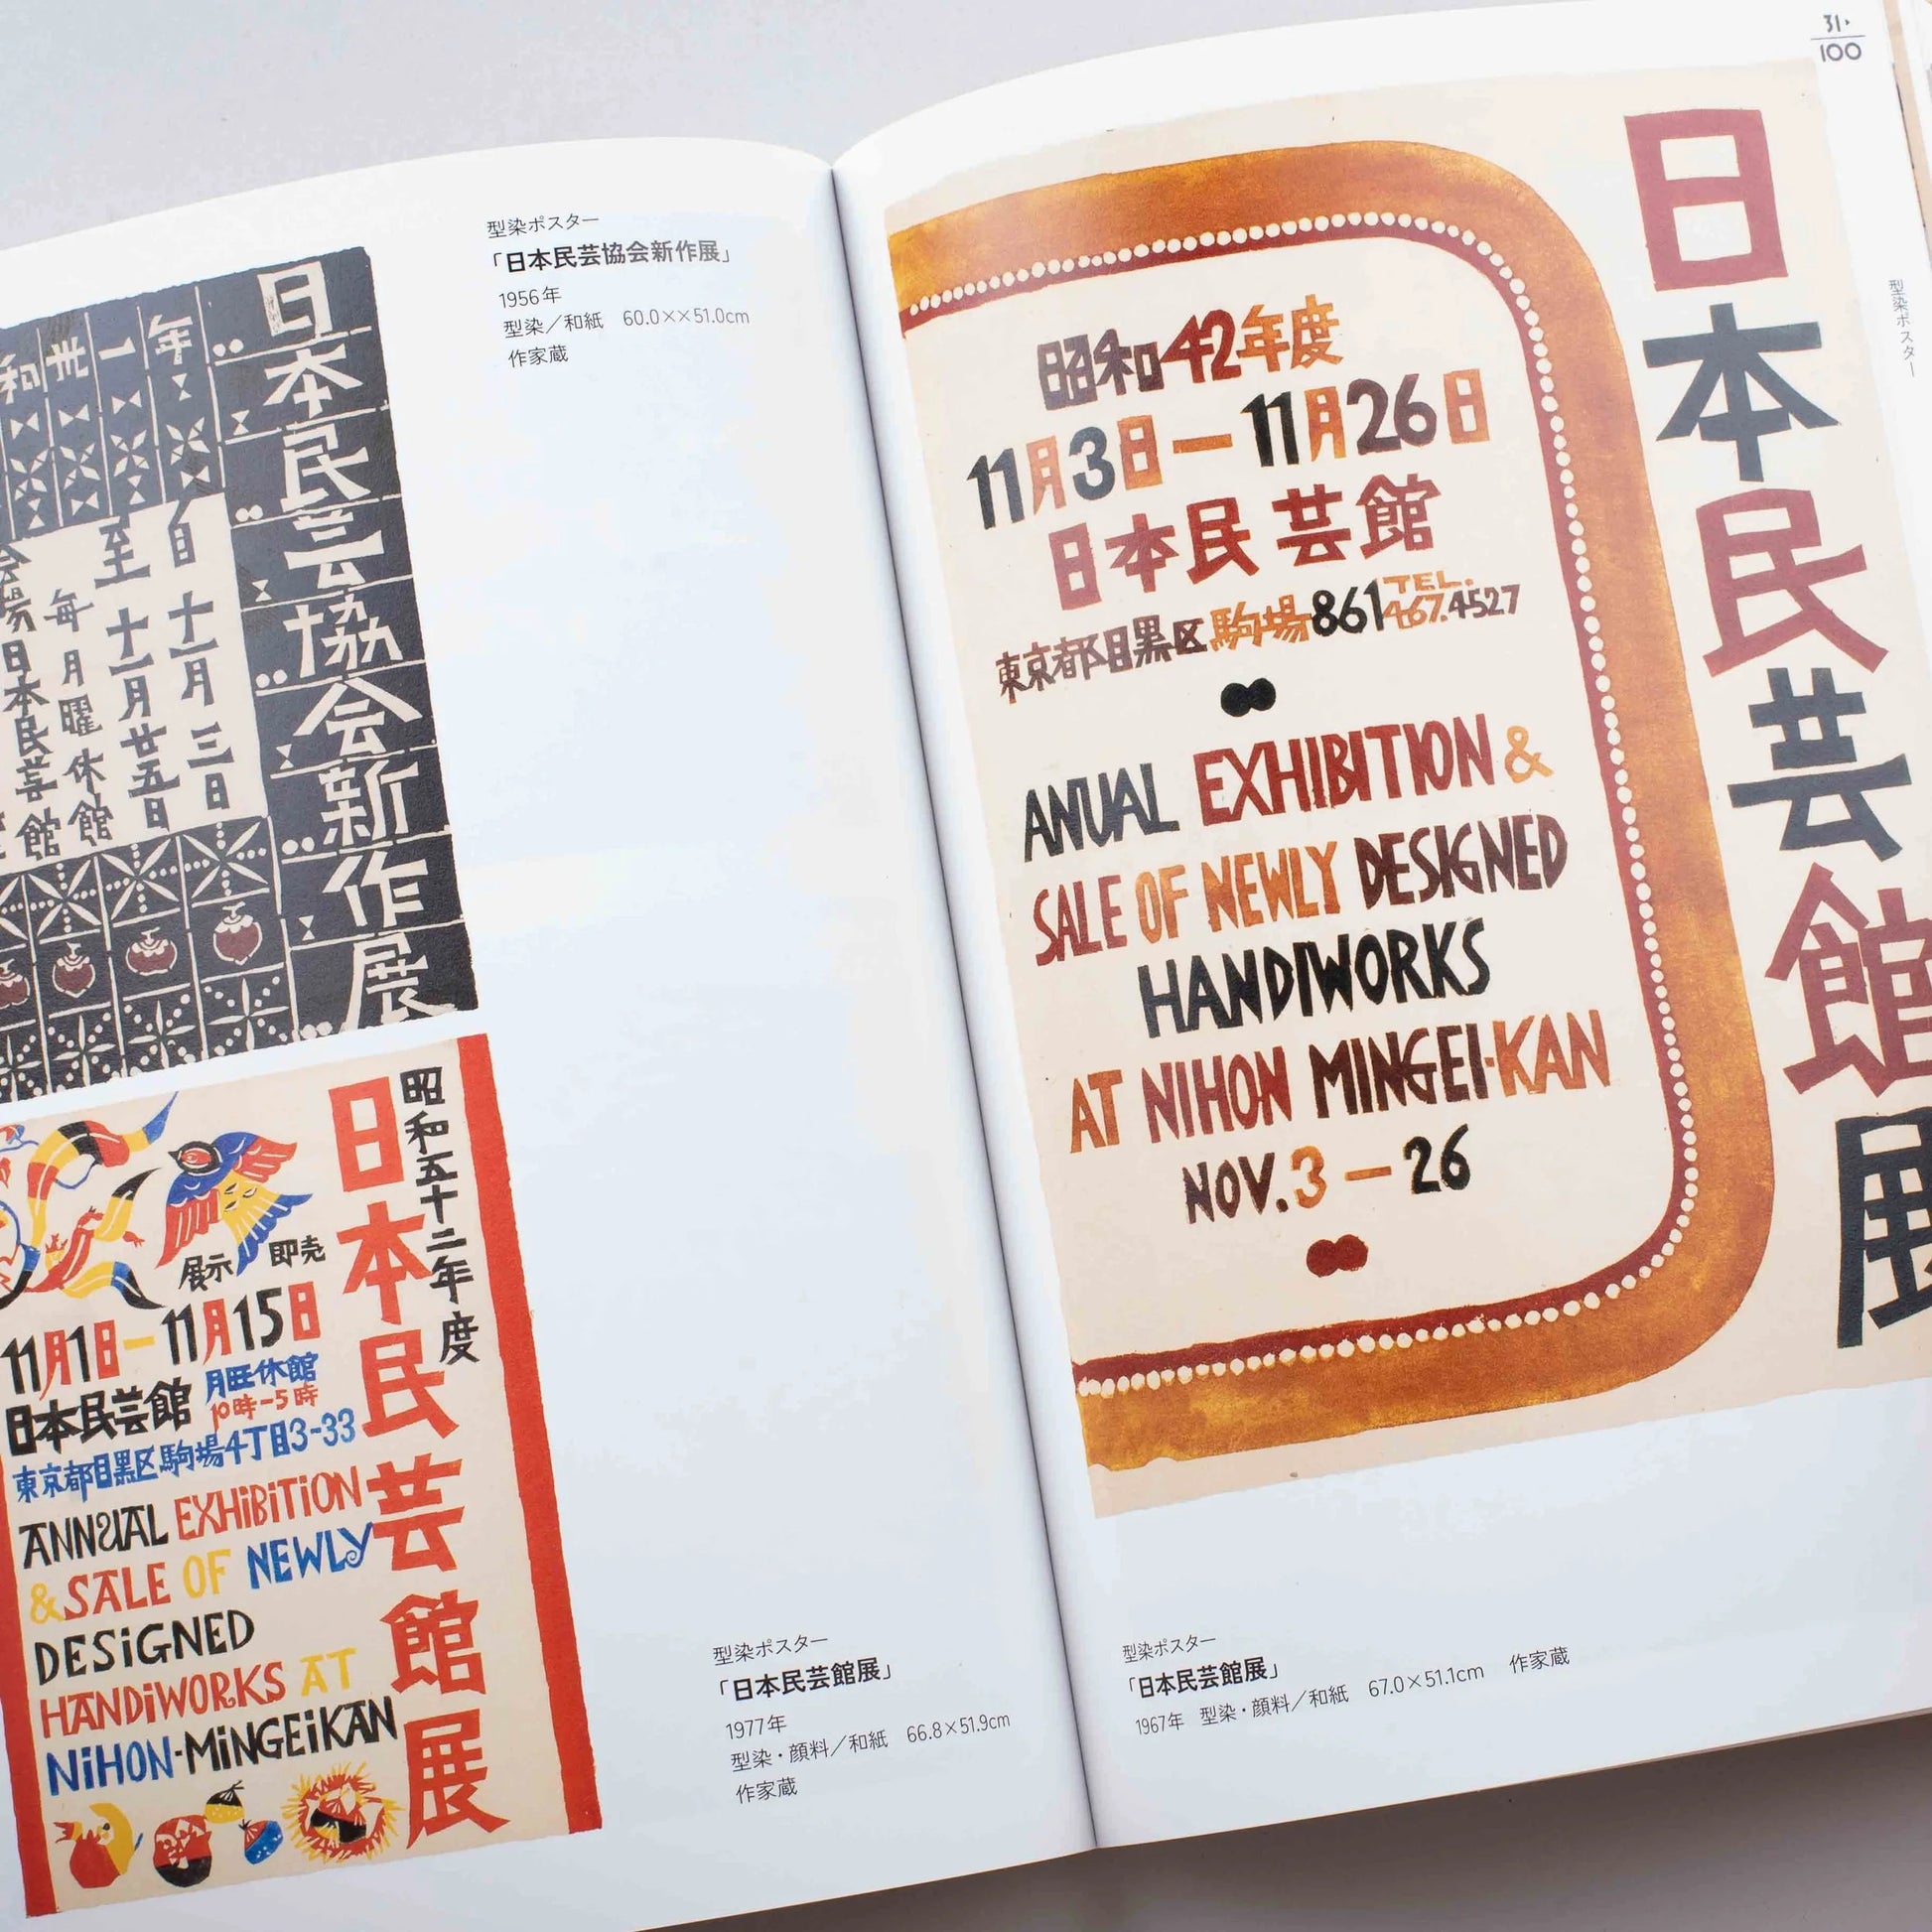 型染ポスター
「日本民芸協会新作展」
1956年
型染／和紙　60.0××51.0cm
作家蔵
日本民芸協会新作展
和丗一年
自十一月三日
至十一月廿五日
毎月曜休館
会場日本民芸館
昭和五十二年度
日本民芸館展
展示 即売
11月1日—11月15日
日本民芸館
月曜休館
10時-5時
東京都目黒区駒場4丁目3-33
ANNUAL EXHiBiTiON
&SALE OF NEWLY
DESiGNED
HANDiWORKS AT
NiHON-MiNGEiKAN
型染ポスター
「日本民芸館展」
1977年
型染・顔料／和紙　66.8×51.9cm
作家蔵
31▸
100
型染ポスター
日本民芸館展
昭和42年度
11月3日—11月26日
日本民芸館
東京都目黒区駒場861 TEL. 467.4527
ANUAL EXHIBITION &
SALE OF NEWLY DESIGNED
HANDIWORKS
AT NIHON MINGEI·KAN
NOV. 3 — 26
型染ポスター
「日本民芸館展」
1967年　型染・顔料／和紙　67.0×51.1cm　作家蔵